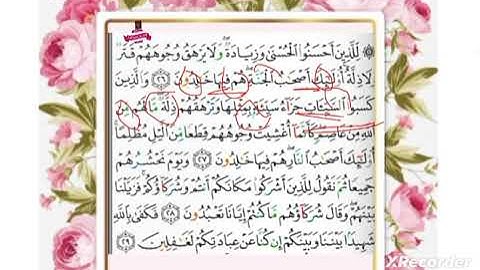 ۞ لِّلَّذِينَ أَحْسَنُوا۟ ٱلْحُسْنَىٰ وَزِيَادَةٌ ۖ وَلَا يَرْهَقُ وُجُوهَهُمْ قَتَرٌ
وَلَا ذِلَّةٌ ۚ أُو۟لَٰٓئِكَ أَصْحَٰبُ ٱلْجَنَّةِ ۖ هُمْ فِيهَا خَٰلِدُونَ ٢٦ وَٱلَّذِينَ
كَسَبُوا۟ ٱلسَّيِّـَٔاتِ جَزَآءُ سَيِّئَةٍۭ بِمِثْلِهَا وَتَرْهَقُهُمْ ذِلَّةٌ ۖ مَّا لَهُم مِّنَ
ٱللَّهِ مِنْ عَاصِمٍ ۖ كَأَنَّمَآ أُغْشِيَتْ وُجُوهُهُمْ قِطَعًا مِّنَ ٱلَّيْلِ مُظْلِمًا ۚ
أُو۟لَٰٓئِكَ أَصْحَٰبُ ٱلنَّارِ ۖ هُمْ فِيهَا خَٰلِدُونَ ٢٧ وَيَوْمَ نَحْشُرُهُمْ
جَمِيعًا ثُمَّ نَقُولُ لِلَّذِينَ أَشْرَكُوا۟ مَكَانَكُمْ أَنتُمْ وَشُرَكَآؤُكُمْ ۚ فَزَيَّلْنَا
بَيْنَهُمْ ۖ وَقَالَ شُرَكَآؤُهُم مَّا كُنتُمْ إِيَّانَا تَعْبُدُونَ ٢٨ فَكَفَىٰ بِٱللَّهِ
شَهِيدًۢا بَيْنَنَا وَبَيْنَكُمْ إِن كُنَّا عَنْ عِبَادَتِكُمْ لَغَٰفِلِينَ ٢٩
XRecorder